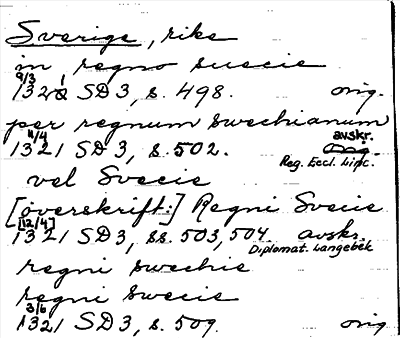 Sverige, rike
in regno suecie
9/3 1321 SD 3, s. 498. orig.
per regnum swechianum
11/4 1321 SD 3, s. 502. avskr. Reg. Eccl. Linc.
vel Svecie
[överskrift:] Regni Svecie
[12/4] 1321 SD 3, ss. 503, 504. avskr. Diplomat. Langebek
regni swechie
regni swecie
3/6 1321 SD 3, s. 509. orig